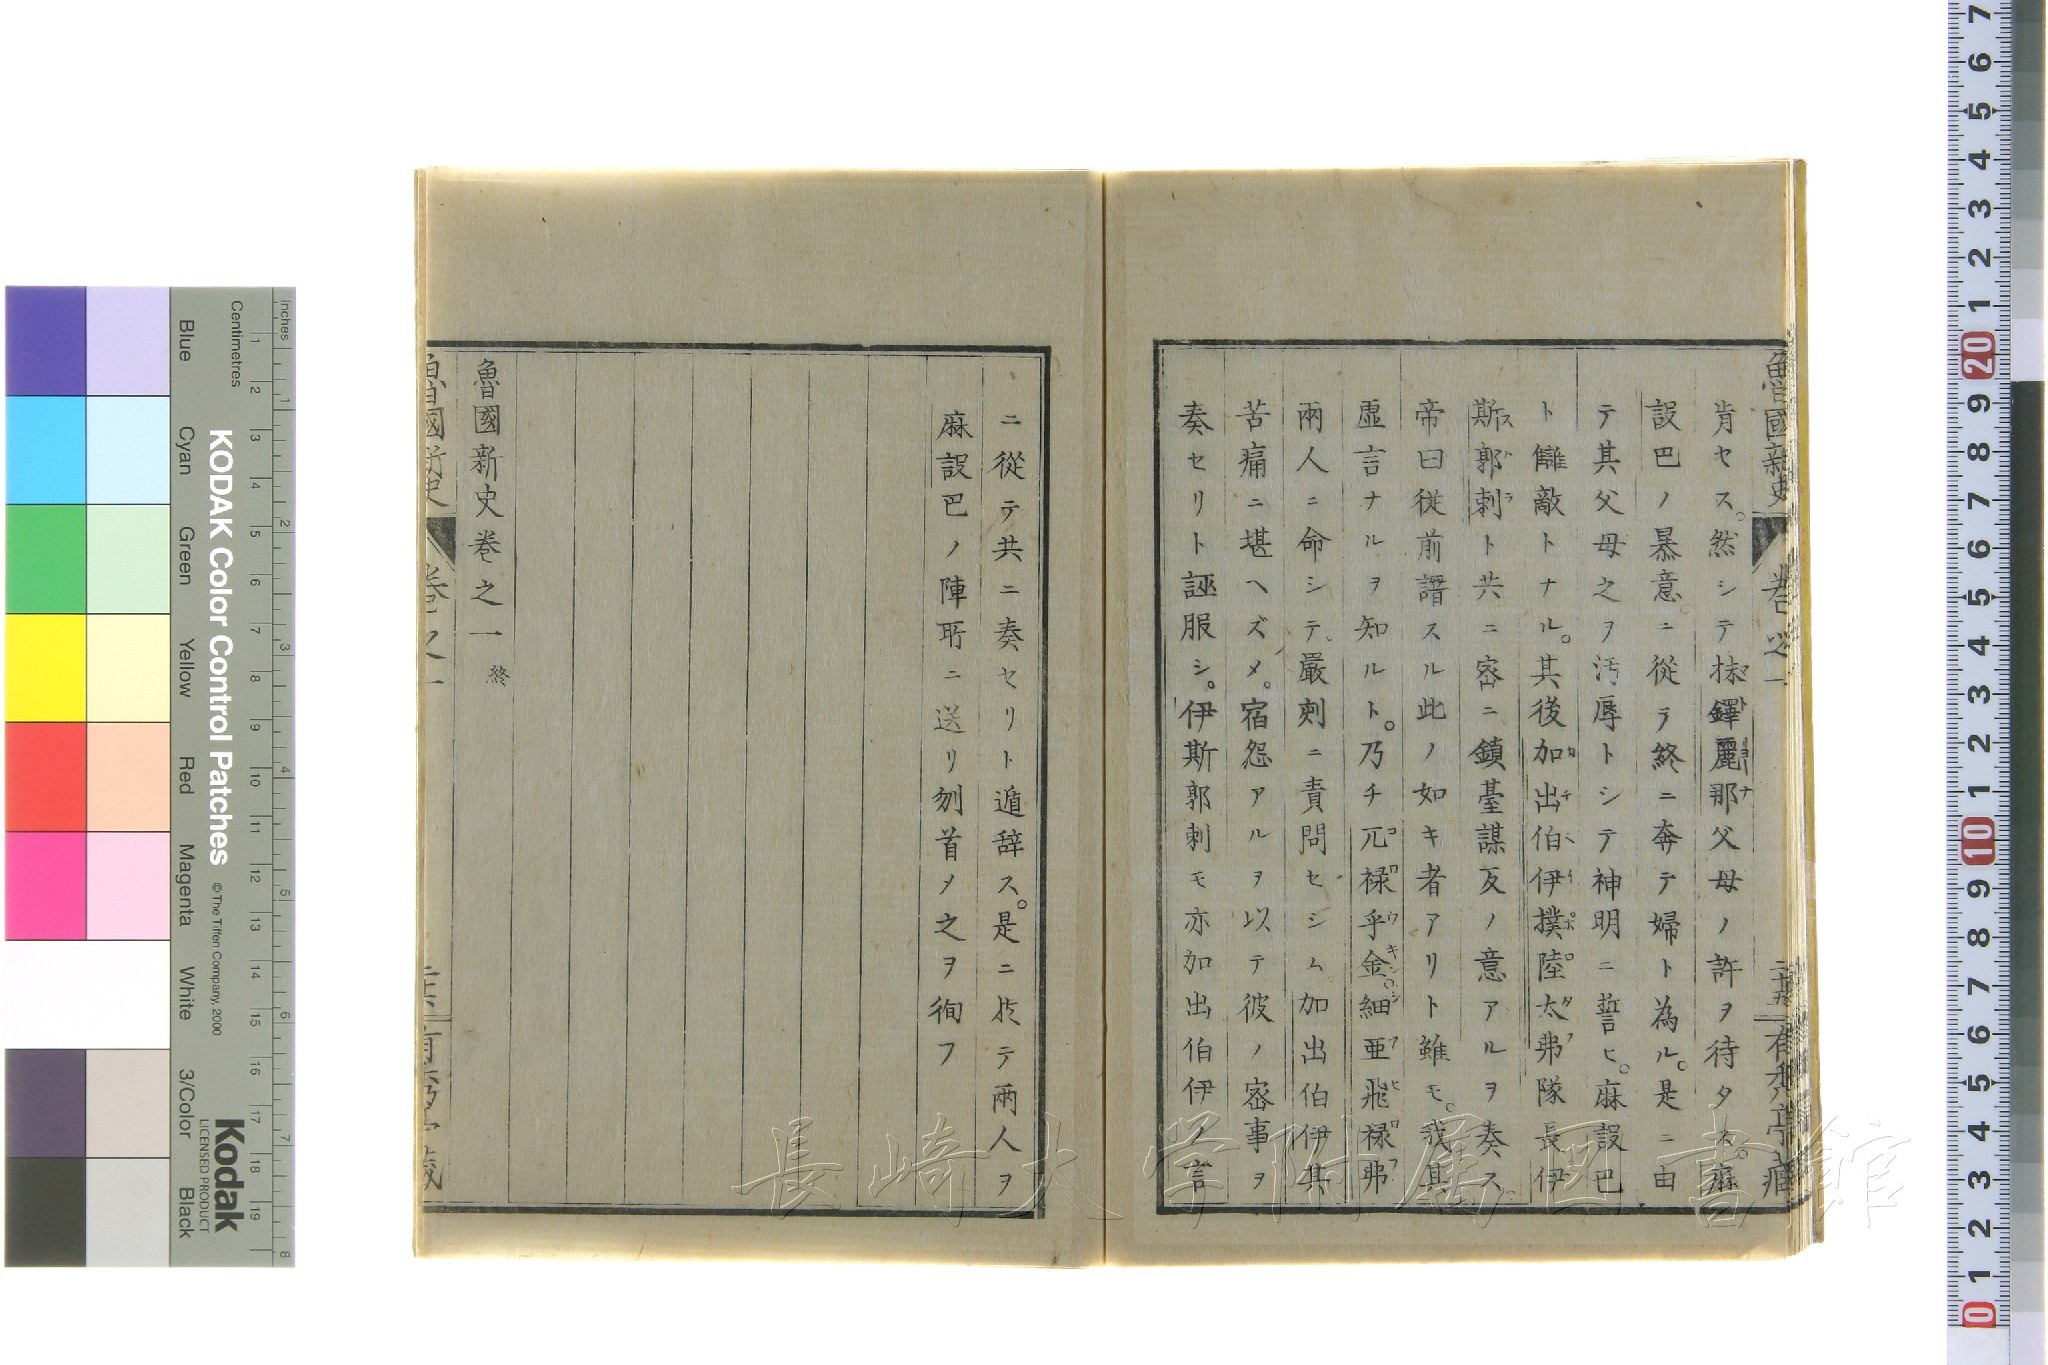 魯國新史 卷之一 二十五 有香亭藏
肯セス。然シテ抹鐸麗那父母ノ許ヲ待タズ。麻
設巴ノ暴意ニ從ヲ終ニ奔テ婦ト為ル。是ニ由
テ其父母之ヲ汚辱トシテ神明ニ誓ヒ。麻設巴
ト讎敵トナル。其後加出伯伊撲陸太弗隊長伊
斯郭刺ト共ニ密ニ鎮臺謀反ノ意アルヲ奏ス
帝曰從前譖スル此ノ如キ者アリト雖モ。我其
虛言ナルヲ知ルト。乃チ兀祿乎金細亜飛祿弗
兩人ニ命シテ。嚴刻ニ責問セシム加出伯伊其
苦痛ニ堪ヘズメ。宿怨アルヲ以テ彼ノ密事ヲ
奏セリト誣服シ。伊斯郭刺モ亦加出伯伊ノ言
ニ從テ共ニ奏セリト遁辞ス。是ニ於テ兩人ヲ
麻設巴ノ陣所ニ送リ刎首メ之ヲ徇フ
魯國新史卷之一 終
魯國新史 卷之一
長崎大学附属図書館
KODAK Color Control Patches
© The Tiffen Company, 2000
Kodak
LICENSED PRODUCT
Inches
Centimetres
Blue
Cyan
Green
Yellow
Red
Magenta
White
3/Color
Black